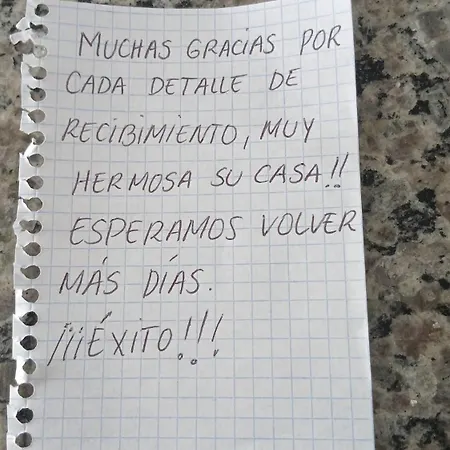 MUCHAS GRACIAS POR
CADA DETALLE DE
RECIBIMIENTO, MUY
HERMOSA SU CASA!!
ESPERAMOS VOLVER
MÁS DÍAS.
¡¡¡ÉXITO!!!